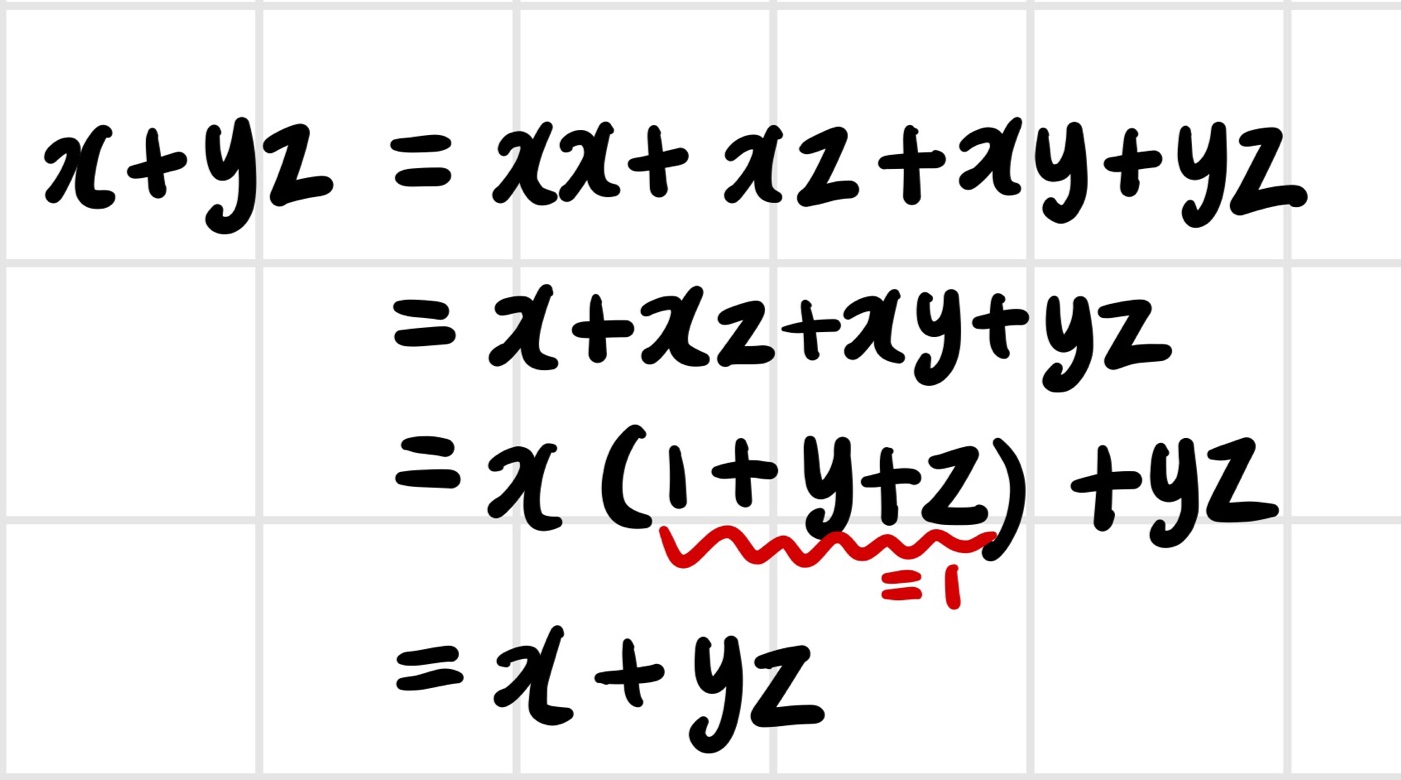 x+yz = xx+ xz+xy+yz
= x+xz+xy+yz
= x (1+y+z) +yz
=1
= x+yz